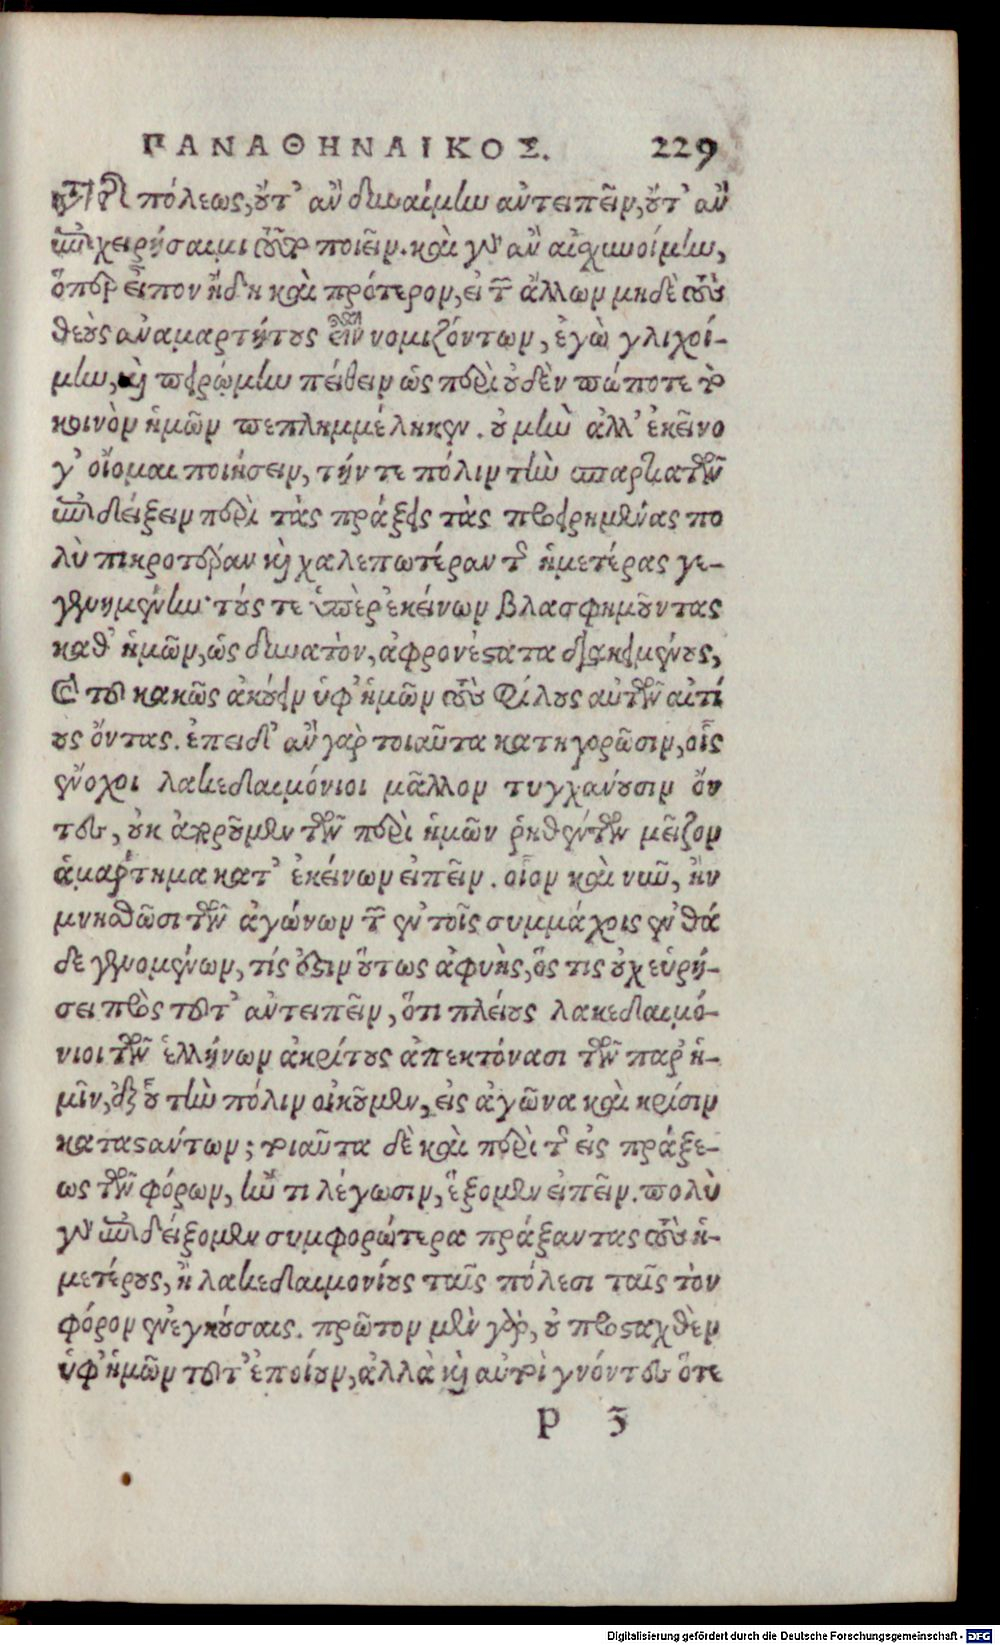 ΠΑΝΑΘΗΝΑΙΚΟΣ. 229
πόλεως, οὔτ' ἂν δυναίμην ἀντειπεῖν, οὔτ' ἂν
ἐπιχειρήσαιμι τοῦτο ποιεῖν. καὶ γὰρ ἂν αἰσχυνοίμην,
ὅπερ εἶπον ἤδη καὶ πρότερον, εἰ τῶν ἄλλων μηδὲ τοὺς
θεοὺς ἀναμαρτήτους εἶναι νομιζόντων, ἐγὼ γλιχοί-
μην, καὶ πειρῴμην πείθειν ὡς περὶ οὐδὲν πώποτε τὸ
κοινὸν ἡμῶν πεπλημμέληκεν. οὐ μὴν ἀλλ' ἐκεῖνο
γ' οἴομαι ποιήσειν, τήν τε πόλιν τὴν σπαρτιατῶν
ἐπιδείξειν περὶ τὰς πράξεις τὰς προειρημένας πο
λὺ πικροτέραν καὶ χαλεπωτέραν τῆς ἡμετέρας γε-
γενημένην· τούς τε ὑπὲρ ἐκείνων βλασφημοῦντας
καθ' ἡμῶν, ὡς δυνατὸν, ἀφρονέστατα διακειμένους,
καὶ τοῦ κακῶς ἀκούειν ὑφ' ἡμῶν τοὺς φίλους αὐτῶν αἰτί
ους ὄντας. ἐπειδ' ἂν γὰρ τοιαῦτα κατηγορῶσιν, οἷς
ἔνοχοι λακεδαιμόνιοι μᾶλλον τυγχάνουσιν ὄν
τες, οὐκ ἀποροῦμεν τῶν περὶ ἡμῶν ῥηθέντων μεῖζον
ἁμάρτημα κατ' ἐκείνων εἰπεῖν. οἷον καὶ νῦν, ἢν
μνησθῶσι τῶν ἀγώνων τῶν ἐν τοῖς συμμάχοις ἐνθά
δε γενομένων, τίς ἐστιν οὕτως ἀφυὴς, ὅς τις οὐχ εὑρή-
σει πρὸς τοῦτ' ἀντειπεῖν, ὅτι πλείους λακεδαιμό-
νιοι τῶν ἑλλήνων ἀκρίτους ἀπεκτόνασι τῶν παρ' ἡ-
μῖν, ἐξ οὗ τὴν πόλιν οἰκοῦμεν, εἰς ἀγῶνα καὶ κρίσιν
καταστάντων; τοιαῦτα δὲ καὶ περὶ τῆς εἰς πράξε-
ως τῶν φόρων, ἤν τι λέγωσιν, ἕξομεν εἰπεῖν. πολὺ
γὰρ ἐπιδείξομεν συμφορώτερα πράξαντας τοὺς ἡ-
μετέρους, ἢ λακεδαιμονίους ταῖς πόλεσι ταῖς τὸν
φόρον ἐνεγκούσαις. πρῶτον μὲν γὰρ, οὐ προσταχθὲν
ὑφ' ἡμῶν τοῦτ' ἐποίουν, ἀλλὰ καὶ αὐτοὶ γνόντες ὅτε
P 3
Digitalisierung gefördert durch die Deutsche Forschungsgemeinschaft - DFG